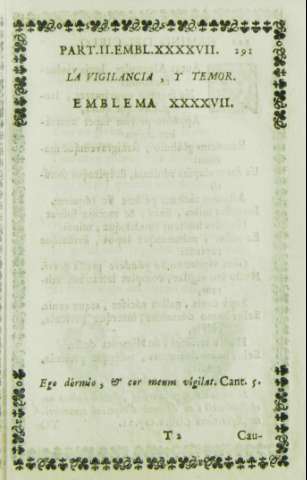 PART.II.EMBL.XXXXVII. 291
LA VIGILANCIA, Y TEMOR.
EMBLEMA XXXXVII.
Ego dormio, & cor meum vigilat. Cant. 5.
T 2 Cau-